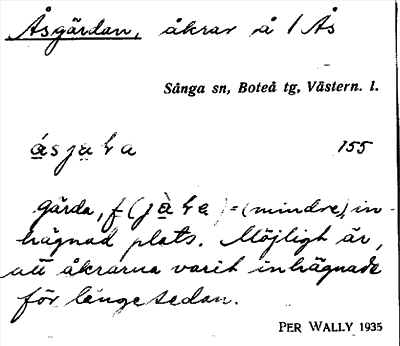 Åsgärdan, åkrar å 1 Ås
Sånga sn, Boteå tg, Västern. l.
155
gärda, f (                ) = (mindre) in-
hägnad plats. Möjligt är,
att åkrarna varit inhägnade
för länge sedan.
PER WALLY 1935